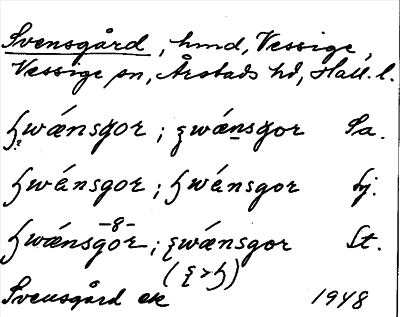 Svensgård, hmd, Vessige,
Vessige sn, Årstads hd, Hall. l.
ɧwǽnsgor; ʒwǽnsgor Sa.
ɧwǽnsgor; ɧwǽnsgor Lj.
ɧwǽnsgor; ʒwǽnsgor St.
-g-
(ʒ>ɧ)
Svensgård ek 1948